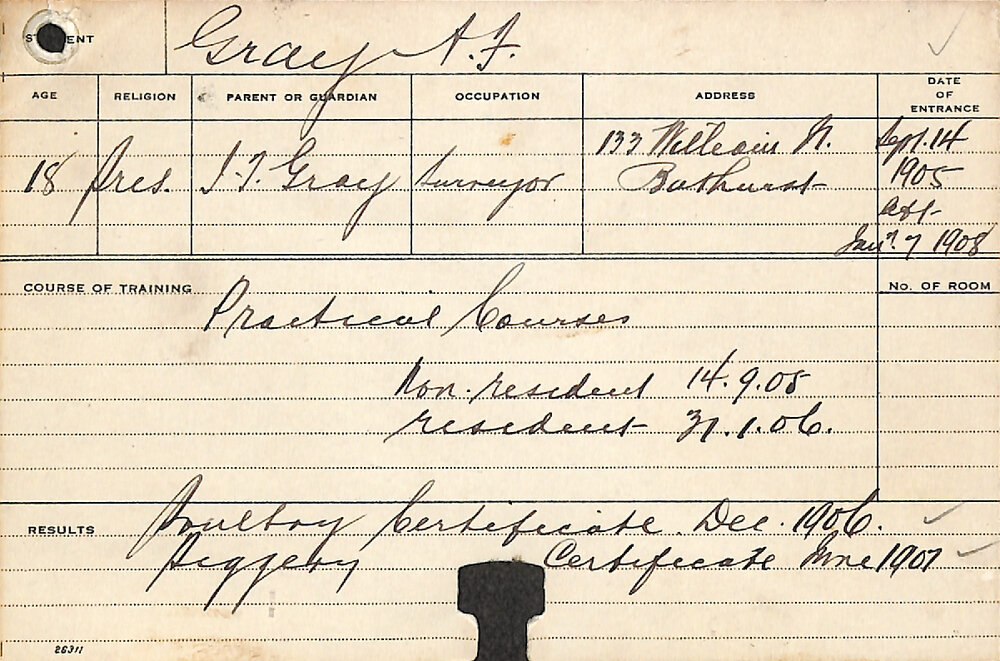 STUDENT Gray A.F.
AGE RELIGION PARENT OR GUARDIAN OCCUPATION ADDRESS DATE OF ENTRANCE
18 Pres. J.F. Gray Surveyor 133 William St. Sept. 14
Bathurst 1905
left
Jany. 7 1908
COURSE OF TRAINING No. OF ROOM
Practical Courses
Non-resident 14.9.05
resident 31.1.06.
RESULTS Poultry Certificate. Dec. 1906.
Piggery Certificate June 1907
26311